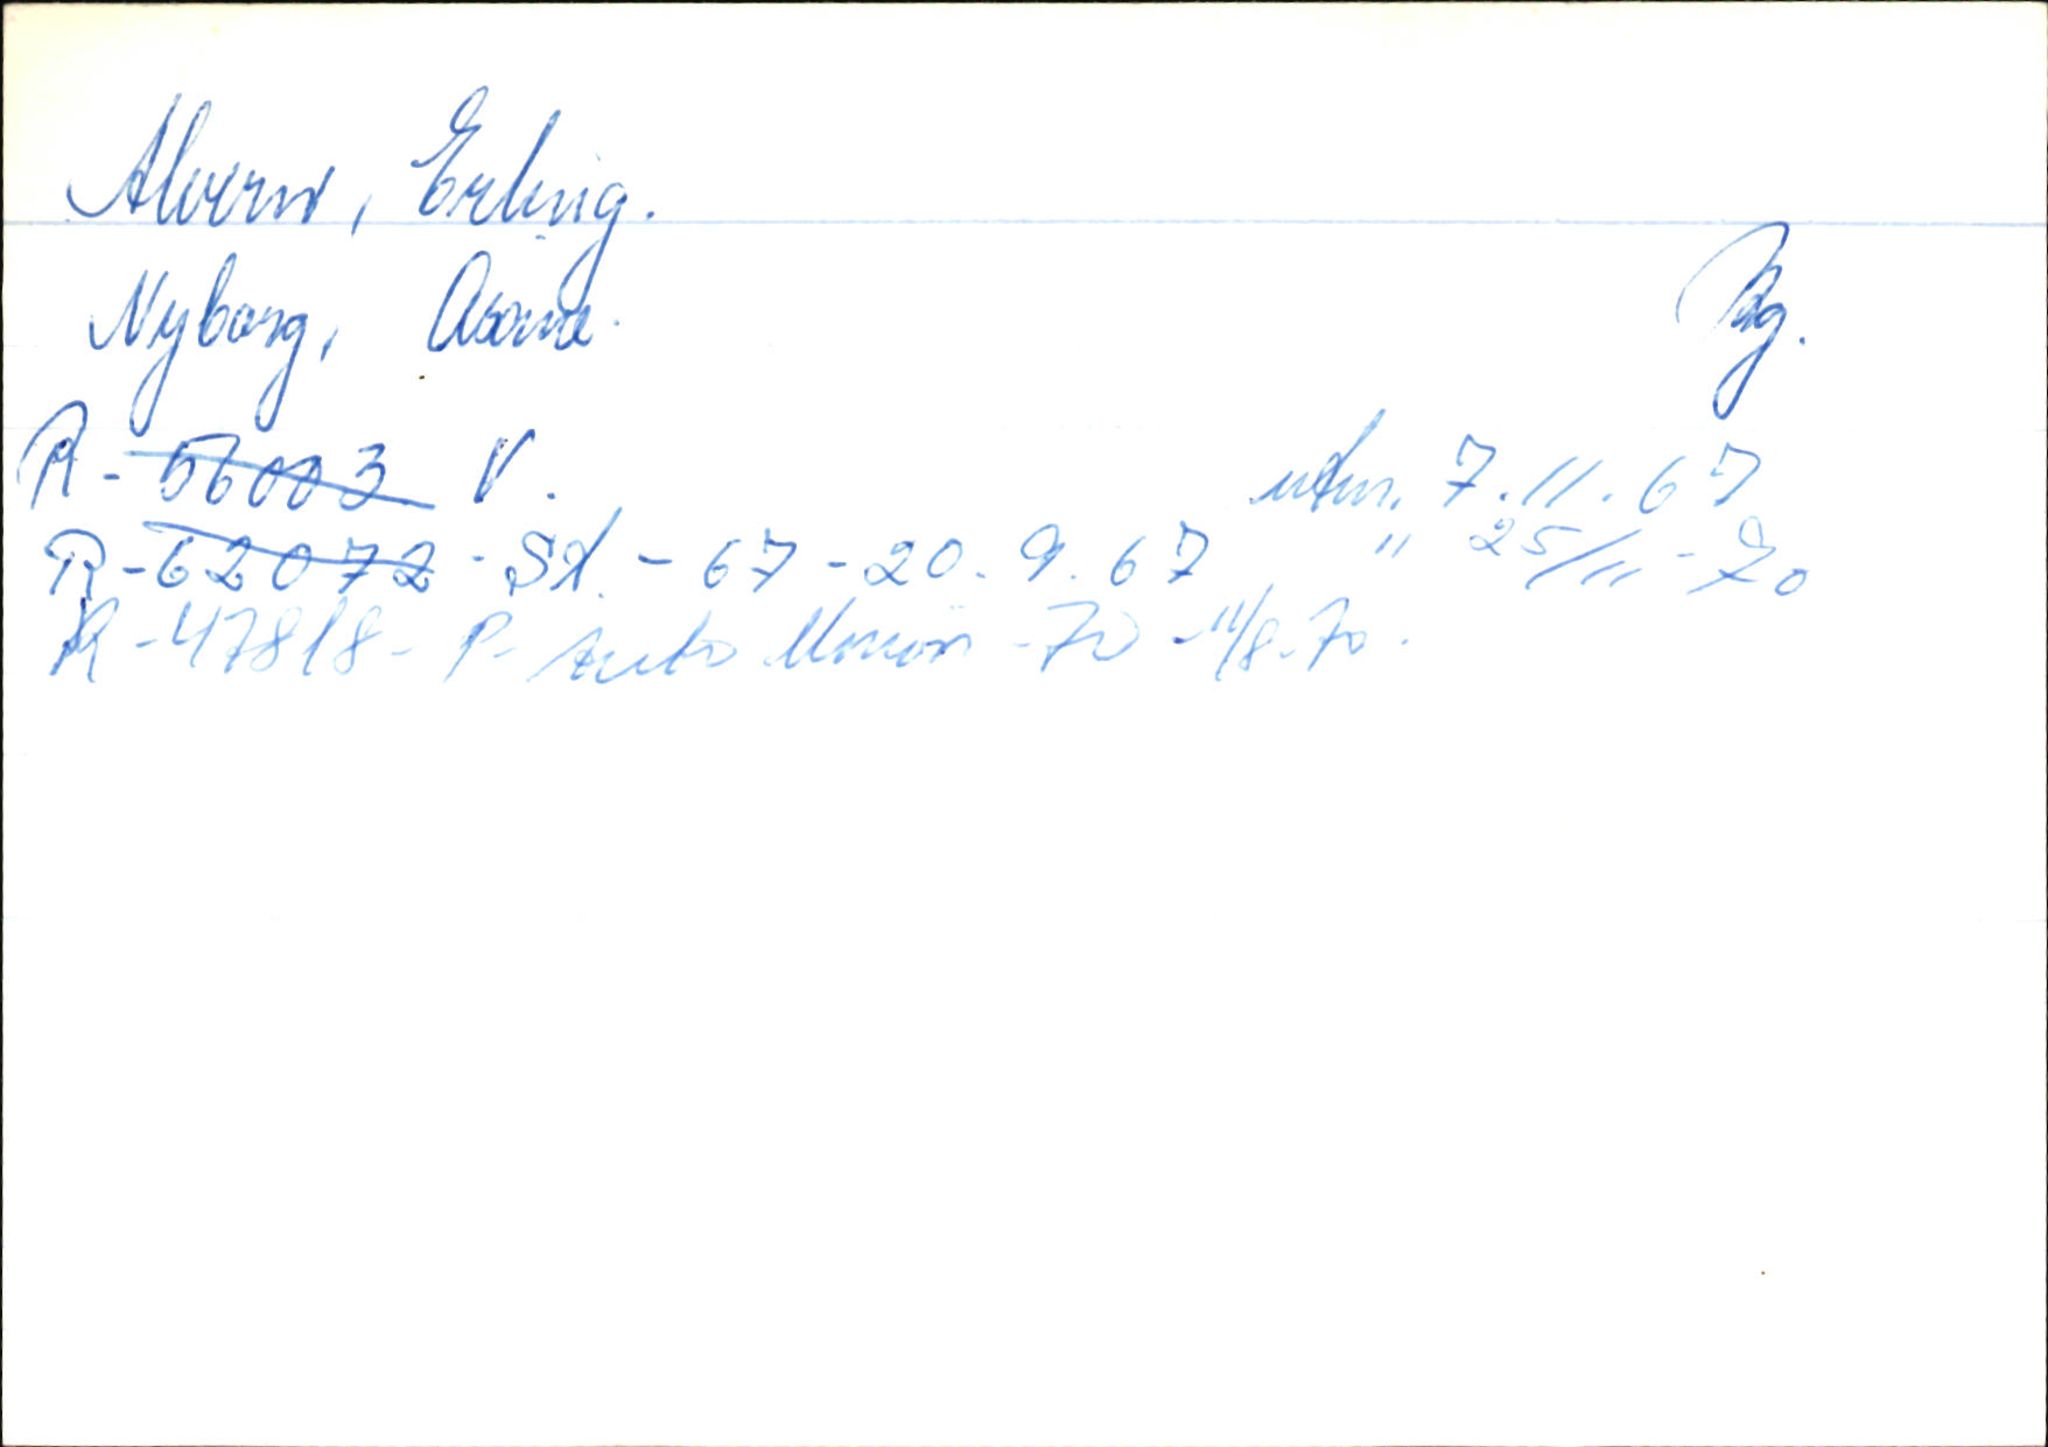 Alvern, Erling.
Nyborg, Åsane. Bg.
R - 56003 V. utm. 7.11.67
R - 62072 - Sd. - 67 - 20.9.67 " 25/11 - 70
R - 47818 - P - Auto Union - 70 - 11/8.70.